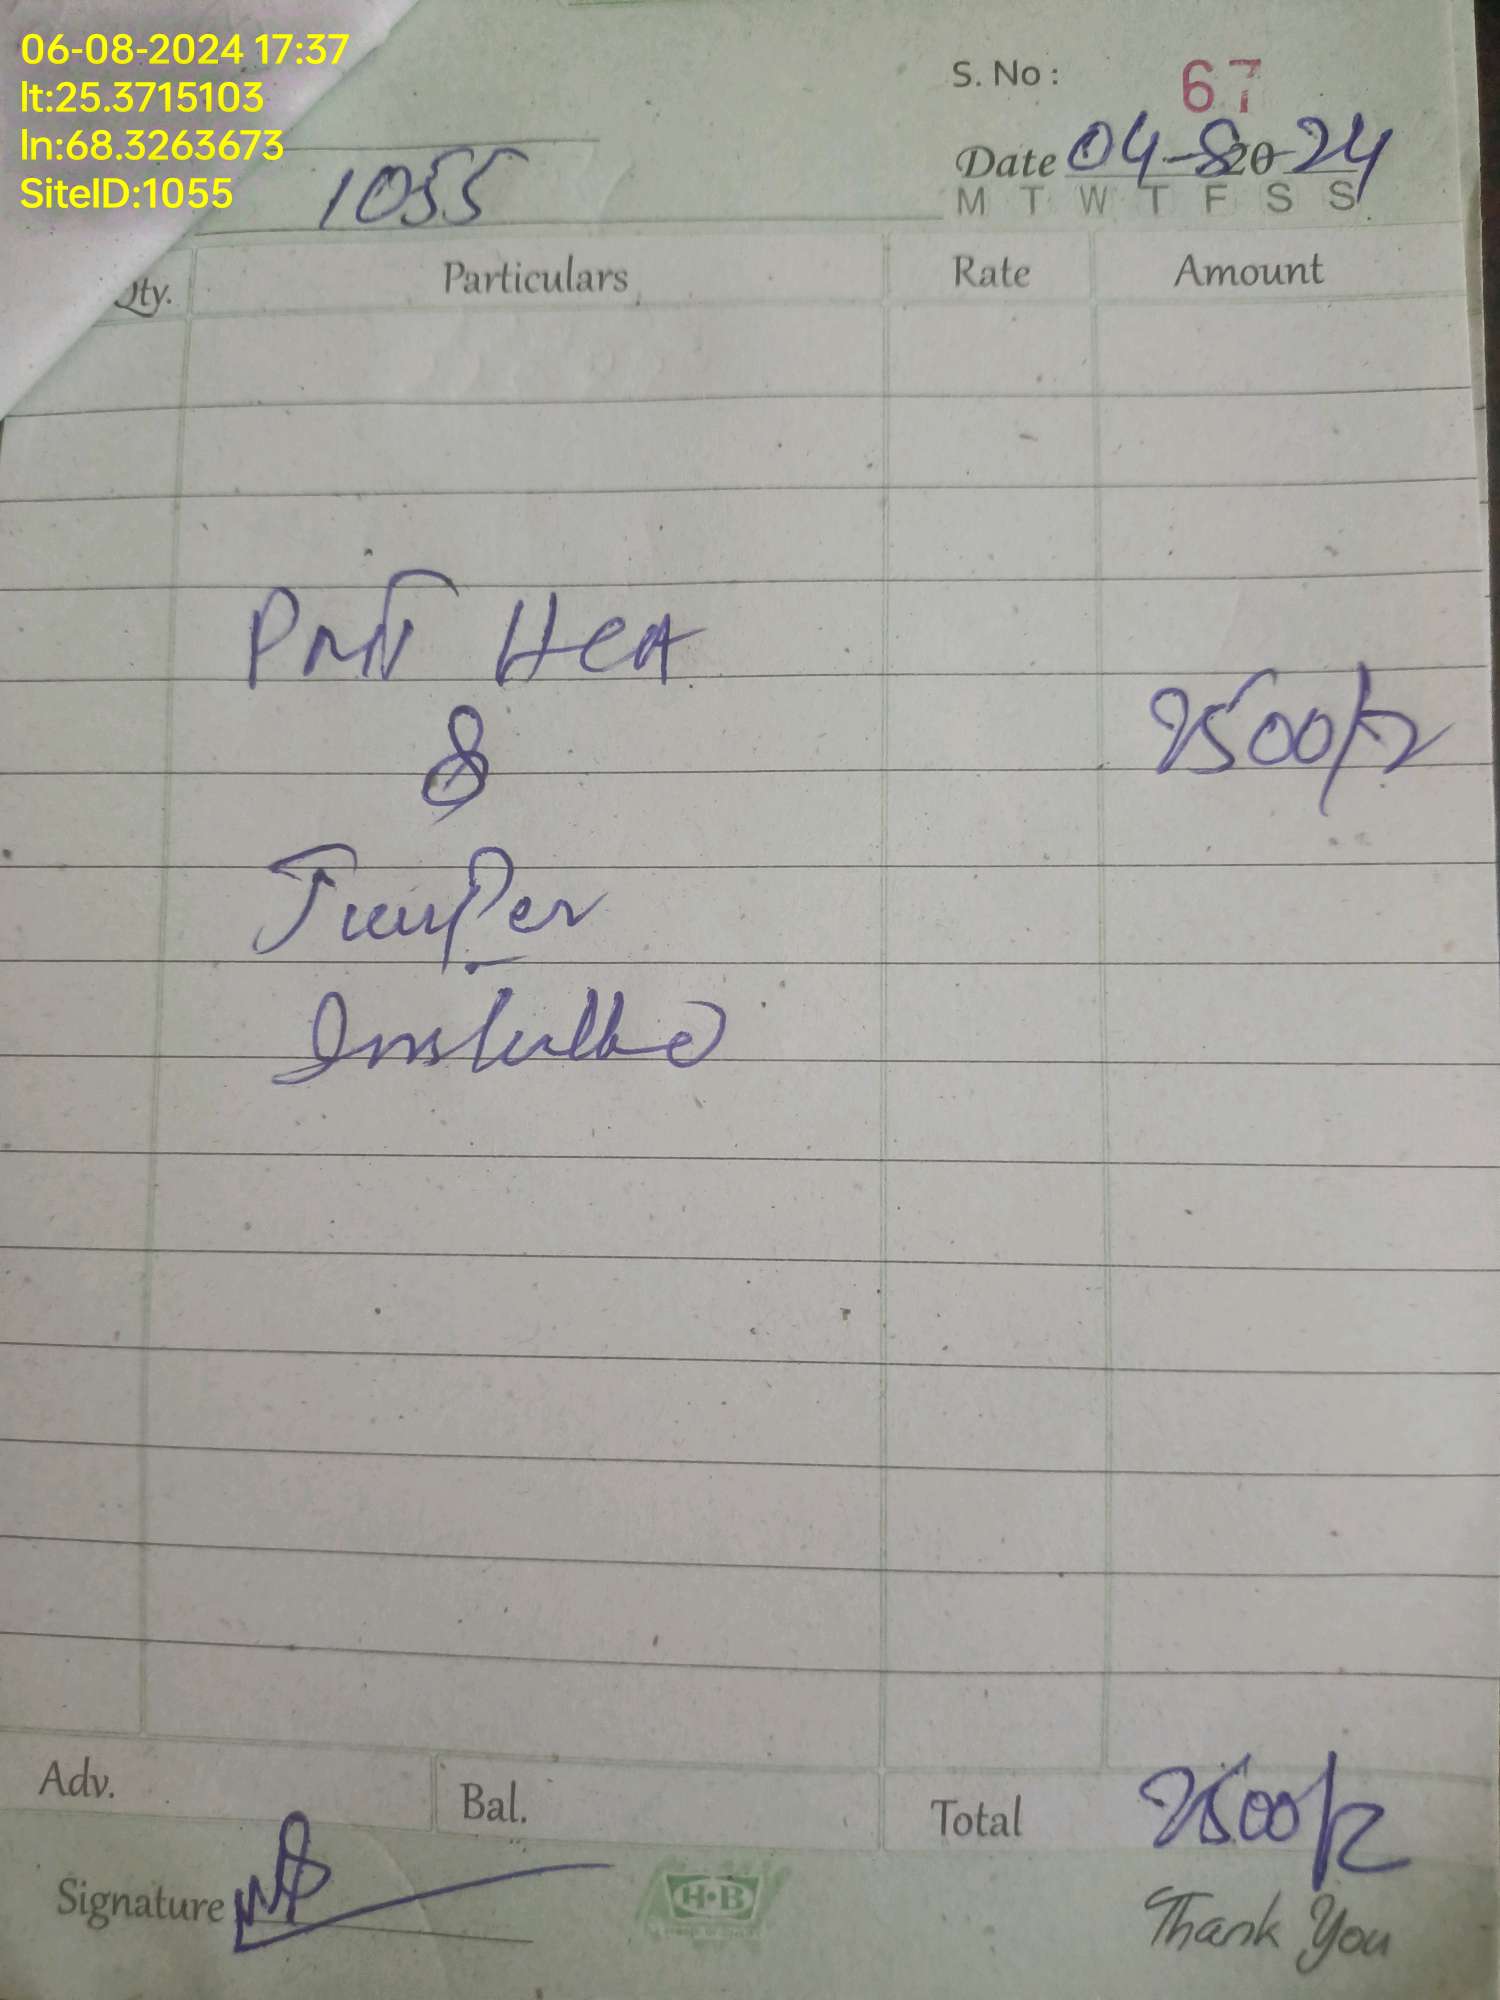 06-08-2024 17:37
lt:25.3715103
ln:68.3263673
SiteID:1055
S. No : 67
Date 04-8-2024
M T W T F S S
1055
Qty. Particulars Rate Amount
PMT HCA
&
2500/-
Jumper
Installed
Adv. Bal. Total 2500/-
Signature
H·B
Thank You